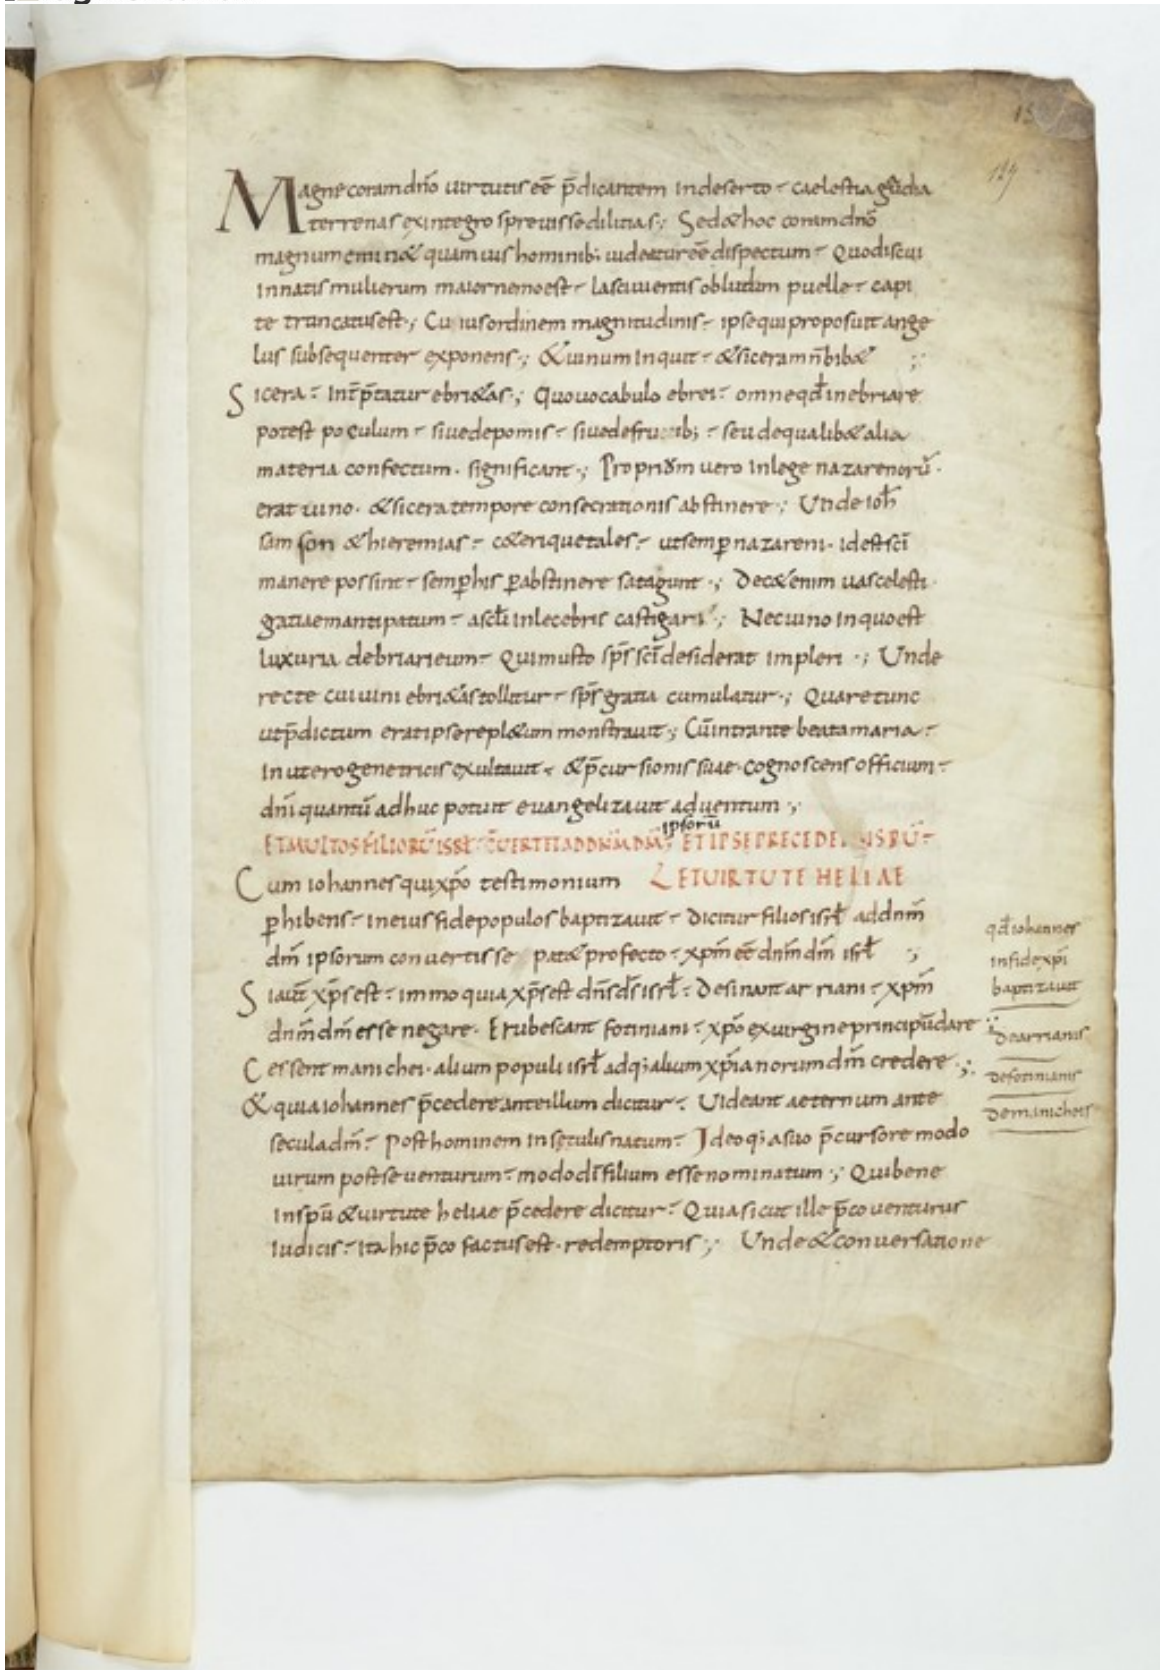 15
149
Magne coram dño uirtutis eẽ p̃dicantem in deserto · caelestia gaudia
terrenas ex integro spreuisse dilitias ·; Sed & hoc coram dnõ
magnum emin& quamuis hominib; uideatur eẽ dispectum · Quod is cui
in natis mulierum maior nemo est · lasciuientis ob ludum puelle · capi
te truncatus est ·; Cuius ordinem magnitudinis · ipse qui proposuit ange
lus subsequenter exponens ·; & uinum inquit · & siceram ñ bib& ·;
Sicera · int̃p̃tatur ebri&as ·; Quo uocabulo ebrei · omne qđ inebriare
potest poculum · siue de pomis · siue de frugib; · seu de qualib& alia
materia confectum · significant ·; Proprium uero in lege nazarenorũ ·
erat uino · & sicera tempore consecrationis abstinere ·; Unde ioħ
samson & hieremias · c&erique tales · ut semꝑ nazareni · id est sc̃i
manere possint · semꝑ his ꝑabstinere satagunt ·; Dec& enim uas celesti
gratiae mancipatum · a sc̃li inlecebris castigari ·; Nec uino in quo est
luxuria debriari eum · Qui musto sp̃s sc̃i desiderat impleri ·; Unde
recte cui uini ebri&as tollitur · sp̃s gratia cumulatur ·; Quare tunc
ut p̃dictum erat ipse repl&um monstrauit ·; Cũ intrante beata maria ·
in utero genetricis exultauit · & p̃cursionis suae · cognoscens officium ·
dñi quantũ adhuc potuit euangelizauit aduentum ·;
ipsorũ
ET MULTOS FILIORŨ ISRŁ · CŨERTET AD DÑM DM̃ · ET IPSE PRECEDE
ET UIRTUTE HELIAE
Cum iohannes qui xp̃o testimonium
ꝑhibens · in eius fide populos baptizauit · dicitur filios isrł ad dnm̃
dm̃ ipsorum conuertisse pat& profecto · xp̃m eẽ dnm̃ dm̃ isrł ·;
Si aut̃ xp̃s est · immo quia xp̃s est dñs ds̃ isrł · Desinant arriani · xp̃m
dnm̃ dm̃ esse negare · Erubescant fotiniani · xp̃o ex uirgine principiũ dare ·;
Cessent manichei · alium populi isrł adq; alium xp̃ianorum dm̃ credere ·;
& quia iohannes p̃cedere ante illum dicitur · Uideant aeternum ante
secula dm̃ · Post hominem in seculis natum · Ideoq; a suo p̃cursore modo
uirum post se uenturum · modo dĩ filium esse nominatum ·; Qui bene
in spũ & uirtute heliae p̃cedere dicitur · Quia sicut ille p̃co uenturus
iudicis · ita hic p̃co factus est · redemptoris ·; Unde & conuersatione
qđ iohannes
in fide xp̃i
baptizauit
de arrianis
de fotinianis
de manicheis